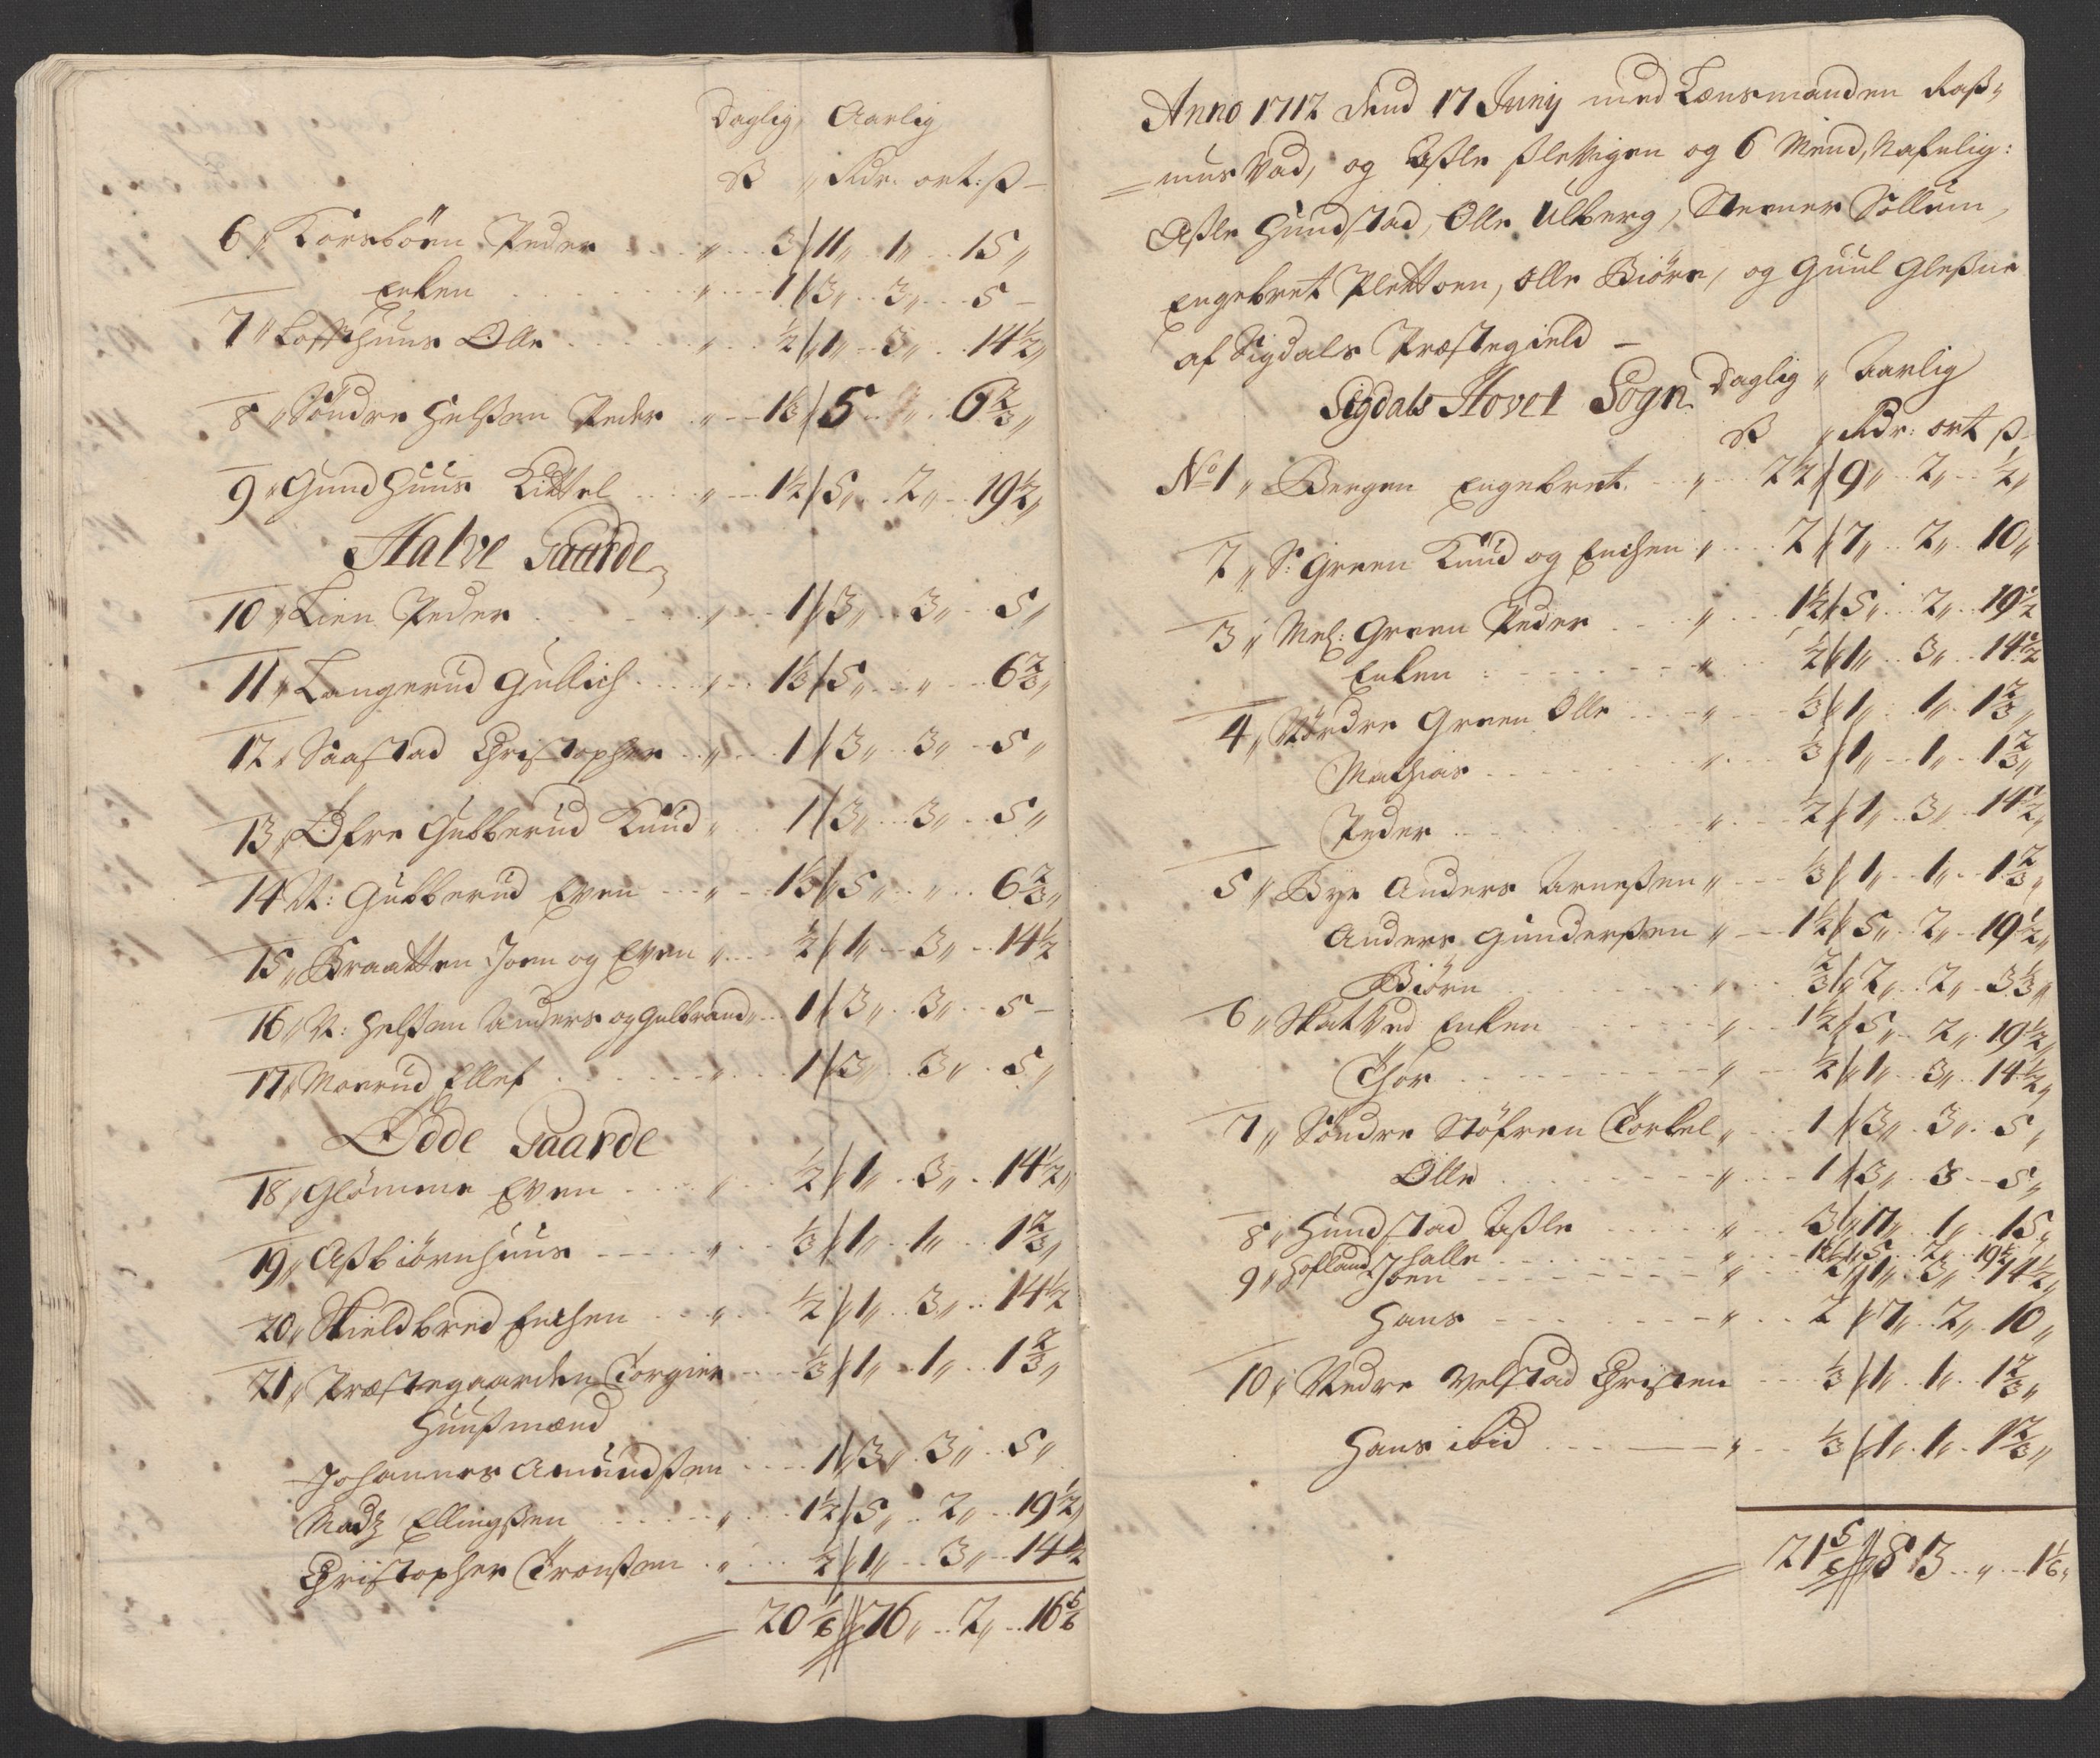 Daglig Aarlig
ß „ Rdr. ort: ß –
6 „ Korsbøen Peder „ 3 // 11 „ 1 „ 15 „
Enken „ 1 // 3 „ 3 „ 5 –
7 „ Loffthuus Olle „ ½ // 1 „ 3 „ 14½ „
8 „ Søndre Helßen Peder „ 1⅓ // 5 „ „ 6⅔ „
9 „ Gundhuus Kittel „ 1½ // 5 „ 2 „ 19½ „
Halve Gaarde
10 „ Lien Peder „ 1 // 3 „ 3 „ 5 „
11 „ Langerud Gullich „ 1⅓ // 5 „ „ 6⅔ „
12 „ Saastad Christopher „ 1 // 3 „ 3 „ 5 „
13 „ Øfre Gubberud Knud „ 1 // 3 „ 3 „ 5 „
14 N: Gubberud Even „ 1⅓ // 5 „ „ 6⅔ „
15 „ Braatten Joen og Even „ ½ // 1 „ 3 „ 14½
16 „ N: Helßen Anders og Gulbrand „ 1 // 3 „ 3 „ 5 –
17 „ Moerud Ellef „ 1 // 3 „ 3 „ 5 „
Ødde Gaarde
18 „ Glømme Even „ ½ // 1 „ 3 „ 14½ „
19 „ Aßbiørnhuus „ ⅓ // 1 „ 1 „ 1⅔ „
20 „ Skieldbred Enchen „ ½ // 1 „ 3 „ 14½
21 „ Præstegaarden Torgier ⅓ // 1 „ 1 „ 1⅔ „
Huußmænd
Johannes Amundßen 1 // 3 „ 3 „ 5 „
Madz Ellingßen „ 1½ // 5 „ 2 „ 19½ „
Christopher Tronßen „ ½ // 1 „ 3 „ 14½
20⅙ // 76 „ 2 „ 16⅚
Anno 1712 dend 17 Junij med Lensmanden Raß„
=mus Vad, og Aßle Slettigen og 6 Mend, Nafnlig:
Aßle Hundstad, Olle Ulberg, Steener Sollum,
Engebret Plettoen, Olle Biøre, og Guul Gleßne
af Sigdals Præstegield –
Sigdals Hovet Sogn Daglig „ Aarlig
ß „ Rdr: ort ß –
No 1 „ Bergen Engebret „ 2½ // 9 „ 2 „ ½ „
2 „ S: Green Knud og Enchen „ 2 // 7 „ 2 „ 10 „
3 „ Mel: Green Peder „ 1½ // 5 „ 2 „ 19½
Enken „ ½ // 1 „ 3 „ 14½
4 „ Nordre Green Olle „ ⅓ // 1 „ 1 „ 1⅔ „
Mathias „ ⅓ // 1 „ 1 „ 1⅔ „
Peder „ ½ // 1 „ 3 „ 14½ „
5 „ Bye Anders Arneßen „ ⅓ // 1 „ 1 „ 1⅔ „
Anders Gunderßen „ 1½ // 5 „ 2 „ 19½ „
Biørn „ ⅔ // 2 „ 2 „ 3⅓ „
6 „ Skatved Enken „ 1½ // 5 „ 2 „ 19½ „
Thor „ ½ // 1 „ 3 „ 14½ „
7 „ Søndre Støfren Torkel „ 1 // 3 „ 3 „ 5 „
Olle „ 1 // 3 „ 3 „ 5 „
8 „ Hundstad Aßle „ 3 // 11 „ 1 „ 15 „
9 „ Hofland Halle „ 1½ // 5 „ 2 „ 19½
Joen „ ½ // 1 „ 3 „ 14½ „
Hans „ 2 // 7 „ 2 „ 10 „
10 „ Nedre Velstad Christen ⅓ // 1 „ 1 „ 1⅔ „
Hans ibid „ ⅓ // 1 „ 1 „ 1⅔ „
21⅚ // 83 „ „ 1⅙ „